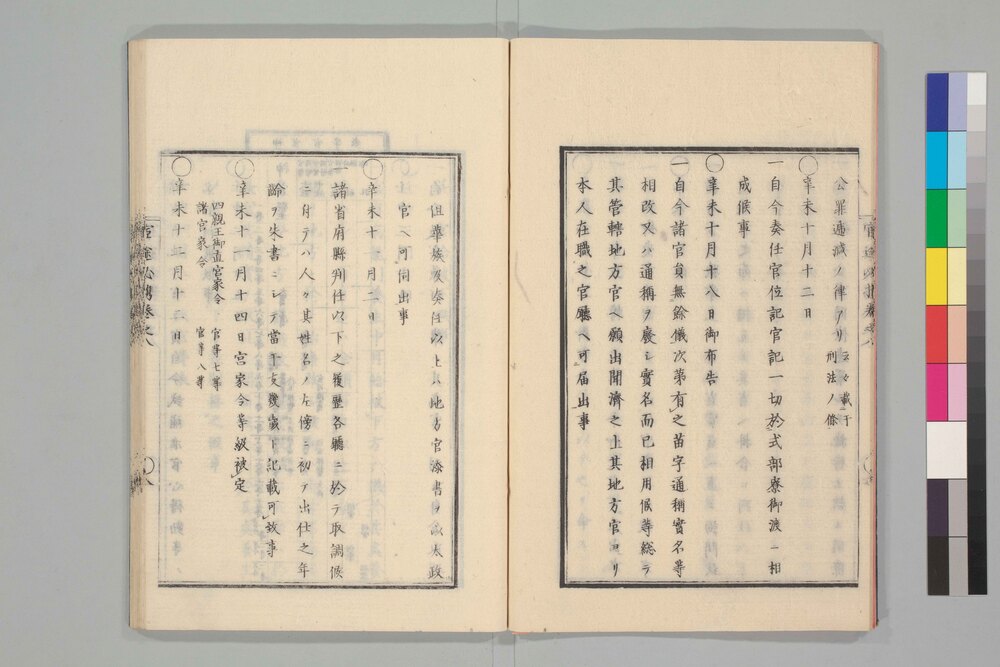 公罪遞減ノ律アリ 云々載于
刑法ノ條
○辛未十月十二日
一自今奏任官位記官記一切於式部寮御渡ニ相
成候事
○辛未十月十八日御布告
一自今諸官員無餘儀次第有之苗字通稱實名等
相改又ハ通稱ヲ廢シ實名而已相用候等総テ
其管轄地方官ヘ願出聞濟之上其地方官ヨリ
本人在職之官廳ヘ可届出事
但華族及奏任以上ハ地方官添書ヲ以太政
官ヘ可伺出事
○辛未十一月二日
一諸省府縣判任以下之履歴各廳ニ於テ取調候
ニ月テハ人々其姓名ノ左傍ニ初テ出仕之年
齢ヲ朱書ニシテ當干支幾歳ト記載可致事
○辛未十一月十四日宮家令等級被定
四親王御直宮家令 官等七等
諸官家令 官等八等
○辛未十二月十二日